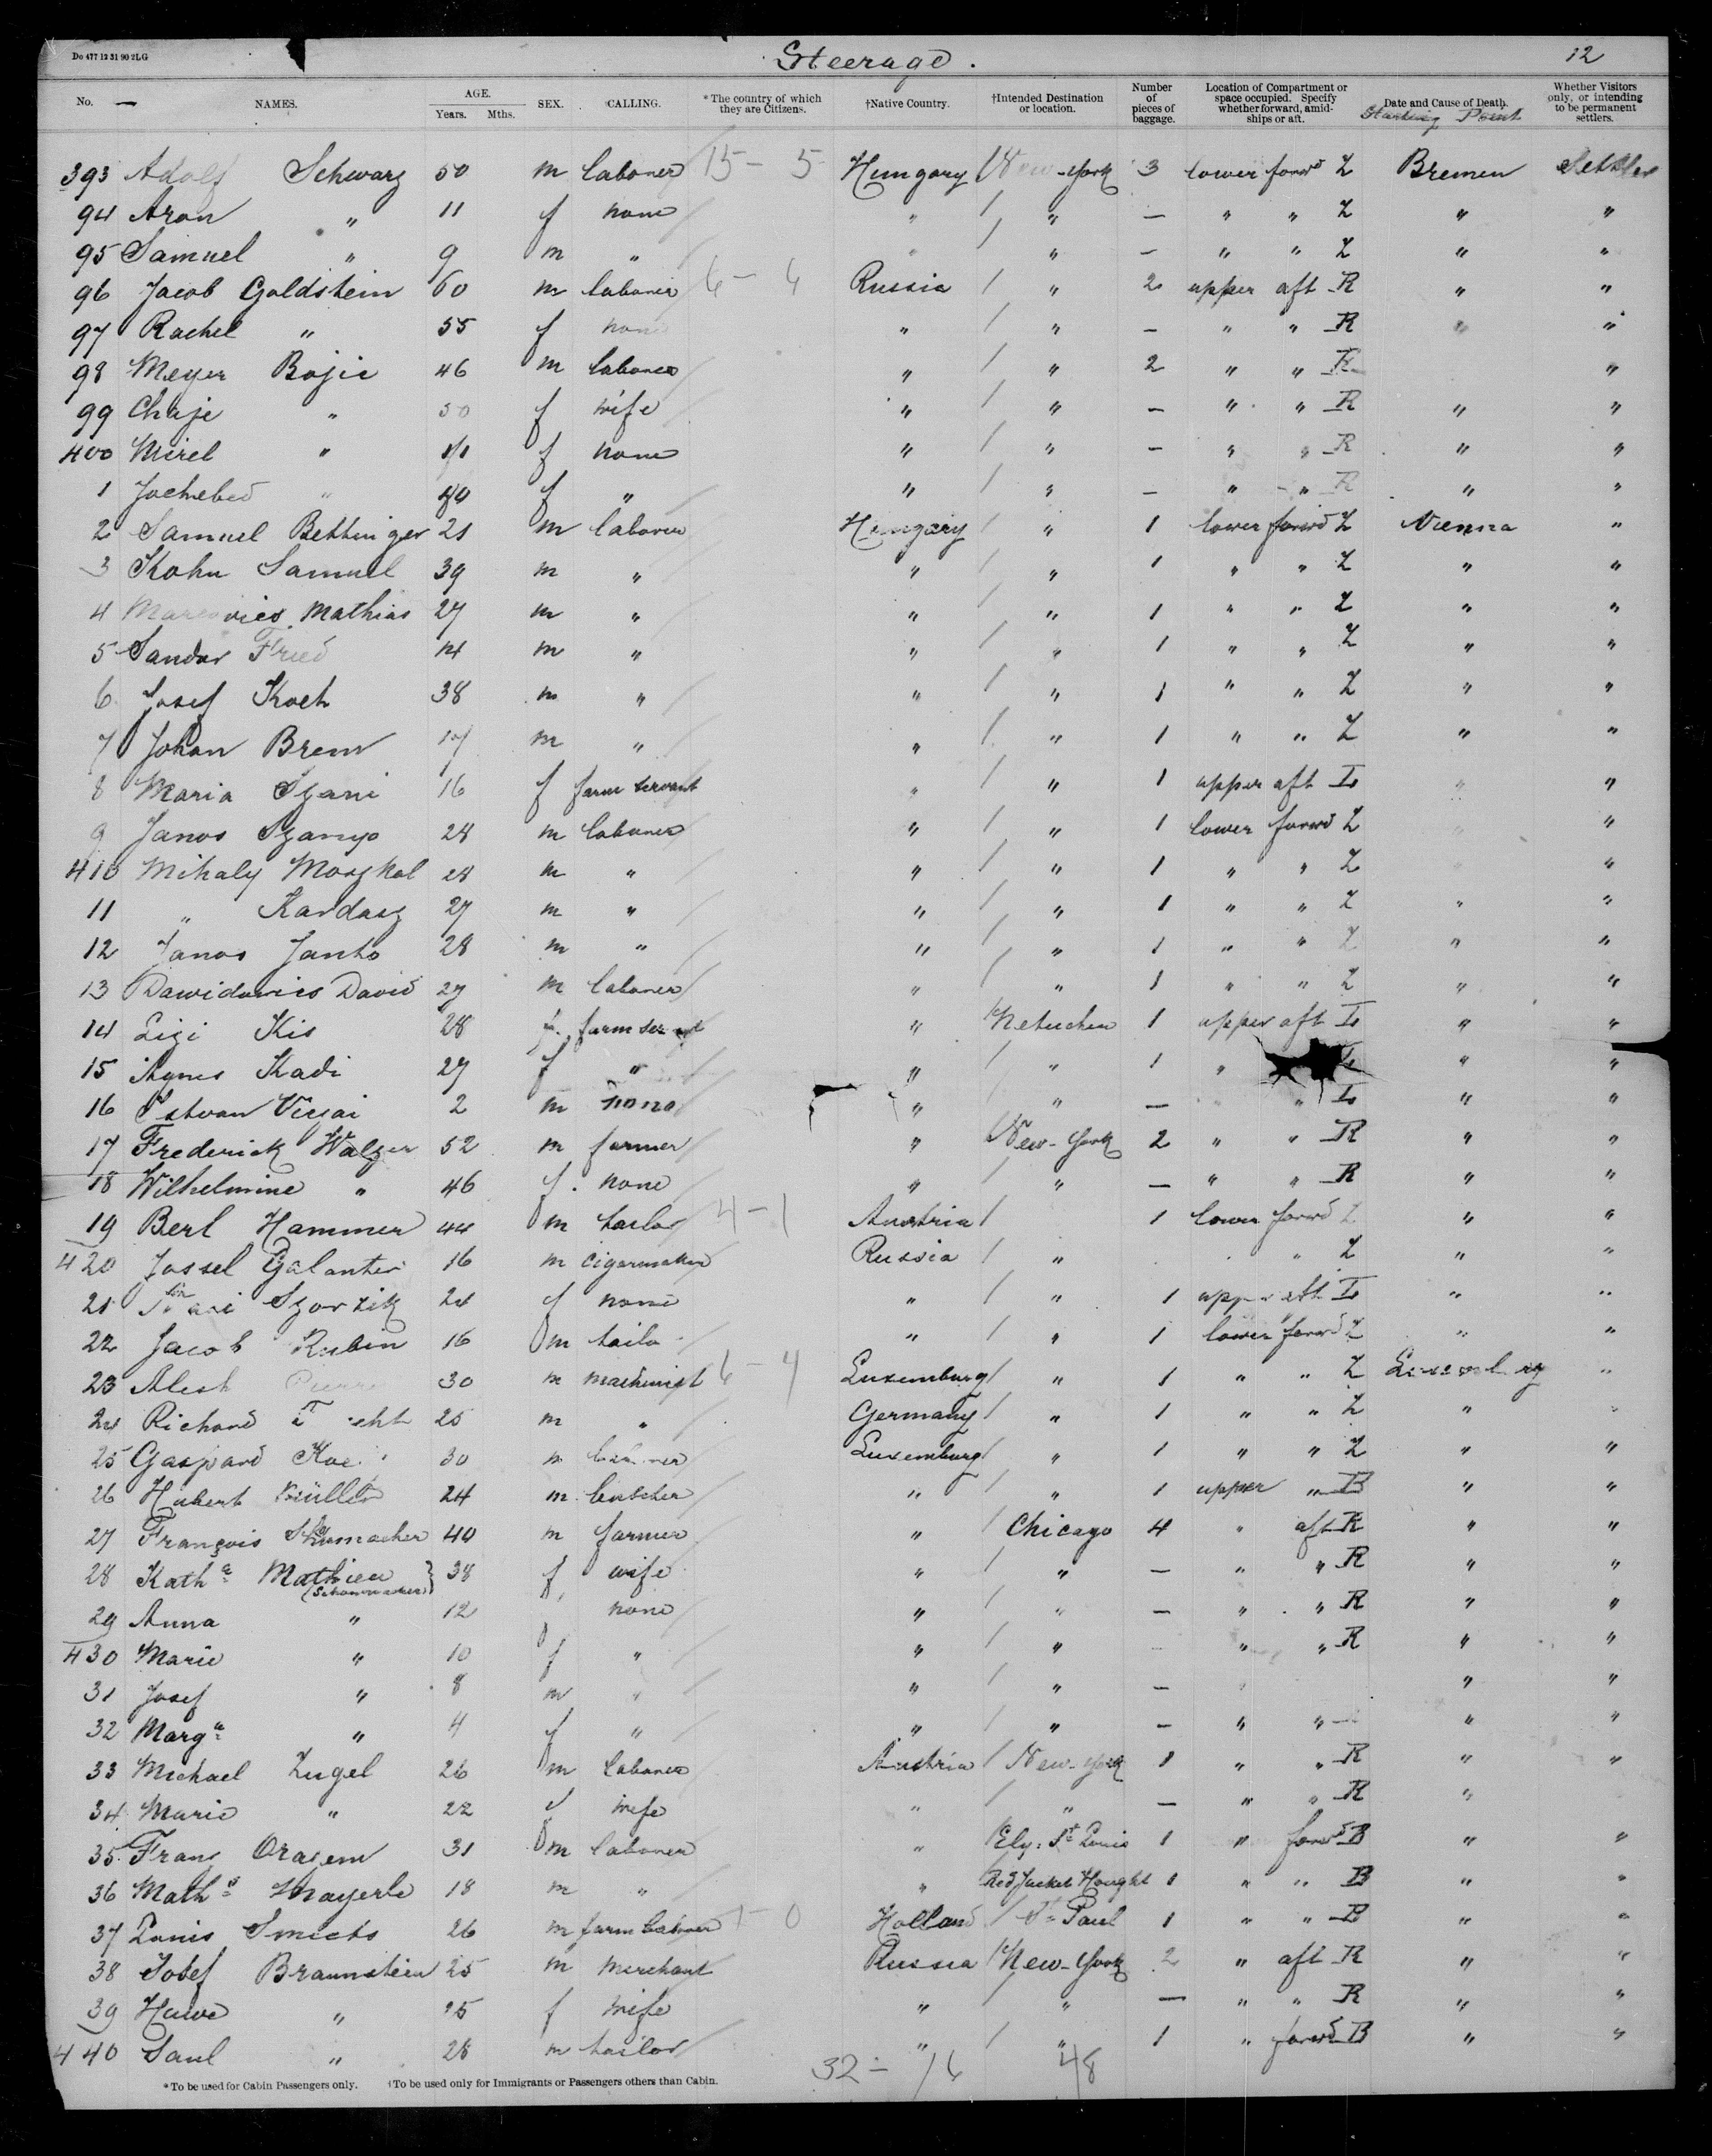 Do 477 12 31 90 2LG
Steerage.
12
No. — NAMES. AGE. Years. Mths. SEX. CALLING. *The country of which they are Citizens. †Native Country. †Intended Destination or location. Number of pieces of baggage. Location of Compartment or space occupied. Specify whether forward, amidships or aft. Date and Cause of Death. Starting Point Whether Visitors only, or intending to be permanent settlers.
393 Adolf Schwarz 50 m laborer 15 - 5 Hungary / New-York 3 lower forwd Z Bremen Settler
94 Aron " 11 f none " / " — " " Z " "
95 Samuel " 9 m " " / " — " " Z " "
96 Jacob Goldstein 60 m laborer 6 - 4 Russia / " 2 upper aft R " "
97 Rachel " 55 f none " / " — " " R " "
98 Meyer Bojie 46 m laborer " / " 2 " " R "
99 Chaje " 50 f wife " / " — " " R " "
400 Mirel " 11 f none " / " — " " R " "
1 Jochebed " f " " / " — " " R " "
2 Samuel Bettinger 21 m laborer Hungary / " 1 lower forwd Z Vienna "
3 Kohn Samuel 39 m " " / " 1 " " Z " "
4 Marcovics Mathias 27 m " " / " 1 " " Z " "
5 Sandor Fried m " " / " 1 " " Z " "
6 Josef Koch 38 m " " / " 1 " " Z " "
7 Johan Brem 17 m " " / " 1 " " Z " "
8 Maria Szani 16 f farm servant " / " 1 upper aft Is " "
9 Janos Szamyo 28 m laborer " / " 1 lower forwd Z " "
410 Mihaly Moszkal 28 m " " / " 1 " " Z " "
11 " Kardasz 27 m " " / " 1 " " Z " "
12 Janos Janto 28 m " " / " 1 " " Z " "
13 Dawidovics David 27 m laborer " / " 1 " " Z " "
14 Lizi Kis 28 f. farm servant " / Metuchen 1 upper aft Is " "
15 Agnes Kadi 27 f " " / " 1 " Is " "
16 Istvan Vizsai 2 m none " / " — " " Is " "
17 Frederick Walzer 52 m farmer " / New-York 2 " " R " "
18 Wilhelmine " 46 f. none " / " — " " R " "
19 Berl Hammer 44 m tailor 4 - 1 Austria / 1 lower forwd Z " "
420 Jossel Galanter 16 m cigarmaker Russia / " " Z " "
21 Szorzik 24 f none " / " 1 upper aft Is " "
22 Jacob Rubin 16 m tailor " / " 1 lower forwd Z " "
23 Alesh Pierre 30 m machinist 6 - 4 Luxemburg / " 1 " " Z Luxemburg "
24 Richard 25 m " Germany / " 1 " " Z " "
25 Gaspard 30 m laborer Luxemburg / " 1 " " Z " "
26 Hubert Müller 24 m. butcher " / " 1 upper " B " "
27 François Schumacher 40 m farmer " / Chicago 4 " aft R " "
28 Katha Mathieu (Schoumacher) } 38 f wife " / " — " " R " "
29 Anna " 12 none " / " — " " R " "
430 Marie " 10 f " " / " — " " R " "
31 Josef " 8 m " " / " — " " "
32 Marga " 4 f " " / " — " " " "
33 Michael Zugel 26 m laborer Austria / New-York 1 " " R " "
34 Marie " 22 f wife " / " — " " R "
35 Franz Orazem 31 m laborer " / Ely: St Louis 1 " forwd B " "
36 Maths Mayerle 18 m " " Red Jacket Hought 1 " " B " "
37 Louis Smiets 26 m farm laborer 1 - 0 Holland / St Paul 1 " " B " "
38 Josef Braunstein 25 m merchant Russia / New-York 2 " aft R " "
39 Hawe " 25 f wife " / " — " " R " "
440 Saul " 28 m tailor " / " 1 " forwd B " "
32 - 16 48
*To be used for Cabin Passengers only. †To be used only for Immigrants or Passengers others than Cabin.